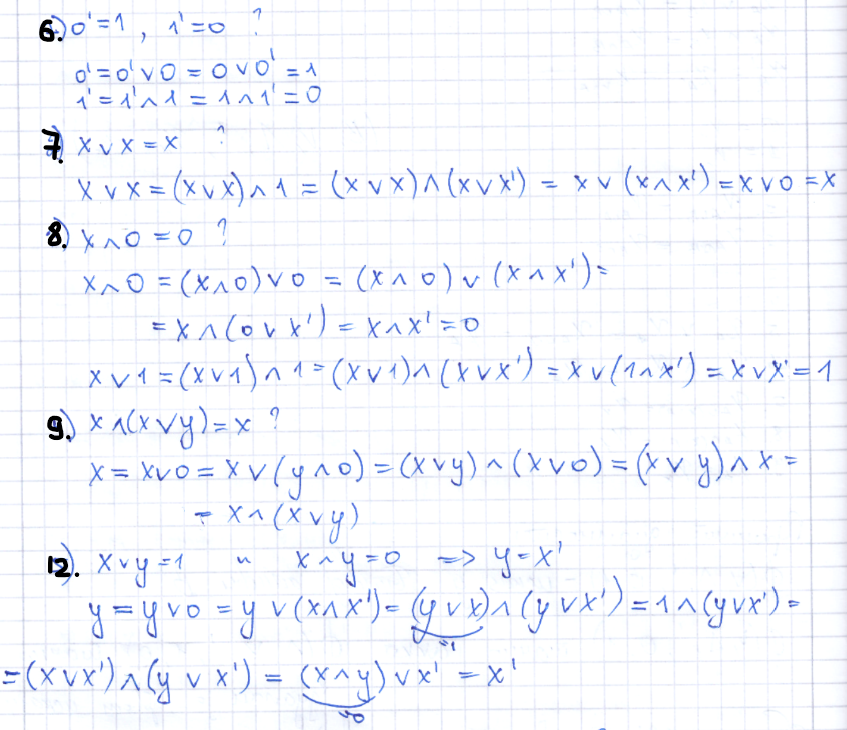 6.) 0' = 1 , 1' = 0 ?
0' = 0' ∨ 0 = 0 ∨ 0' = 1
1' = 1' ∧ 1 = 1 ∧ 1' = 0
7.) x ∨ x = x ?
x ∨ x = (x ∨ x) ∧ 1 = (x ∨ x) ∧ (x ∨ x') = x ∨ (x ∧ x') = x ∨ 0 = x
8.) x ∧ 0 = 0 ?
x ∧ 0 = (x ∧ 0) ∨ 0 = (x ∧ 0) ∨ (x ∧ x') =
= x ∧ (0 ∨ x') = x ∧ x' = 0
x ∨ 1 = (x ∨ 1) ∧ 1 = (x ∨ 1) ∧ (x ∨ x') = x ∨ (1 ∧ x') = x ∨ x' = 1
9.) x ∧ (x ∨ y) = x ?
x = x ∨ 0 = x ∨ (y ∧ 0) = (x ∨ y) ∧ (x ∨ 0) = (x ∨ y) ∧ x =
= x ∧ (x ∨ y)
12.) x ∨ y = 1 и x ∧ y = 0 => y = x'
y = y ∨ 0 = y ∨ (x ∧ x') = (y ∨ x) ∧ (y ∨ x') = 1 ∧ (y ∨ x') =
= (x ∨ x') ∧ (y ∨ x') = (x ∧ y) ∨ x' = x'